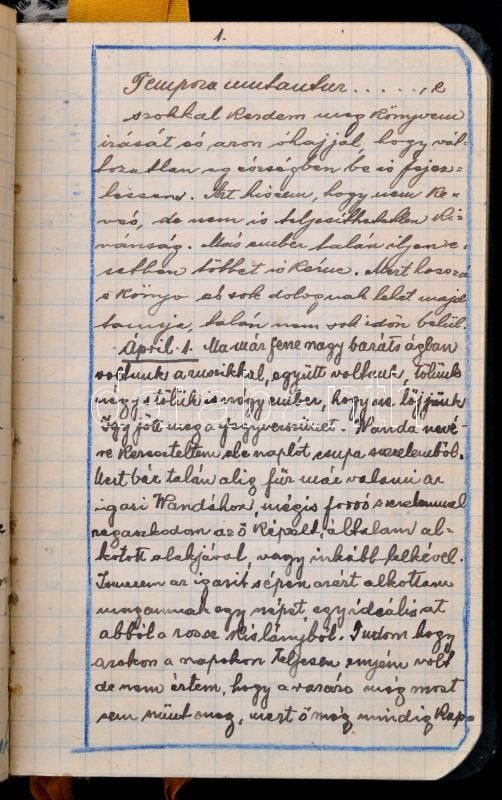 1.
Tempora mutantur . . . . . , e
szokkal kezdem meg könyvem
irását és azon óhajjal, hogy vál-
tozatlan egészségben be is fejez-
hessem. Azt hiszem, hogy nem ke-
vés, de nem is teljesithetetlen ki-
vánság. Más ember talán ilyen e-
setben többet is kérne. Mert hosszu
e könyv és sok dolognak lehet majd
tanuja, talán nem sok időn belül.
Ápril. 1. Ma már fene nagy barátságban
voltunk a muszikkal, együtt voltunk, tőlünk
négy s tőlük is négy ember, hogy ne lőjjünk
Igy jött meg a fegyverszünet. Wanda nevé-
re kereszteltem ebe naplót csupa szerelemből.
Mert bár talán alig fűz már valami az
igazi Wandához, mégis forró szerelemmel
ragaszkodom az ő képéll, általam al-
kotott alakjával, vagy inkább lelkével.
Ismerem az igazit s épen azért alkottam
magamnak egy szépet egy ideálisat
abból a rossz kislányból. Tudom hogy
azokon a napokon teljesen enyém volt
de nem értem, hogy a varázs még most
sem szünt meg, mert ő még mindig kap-